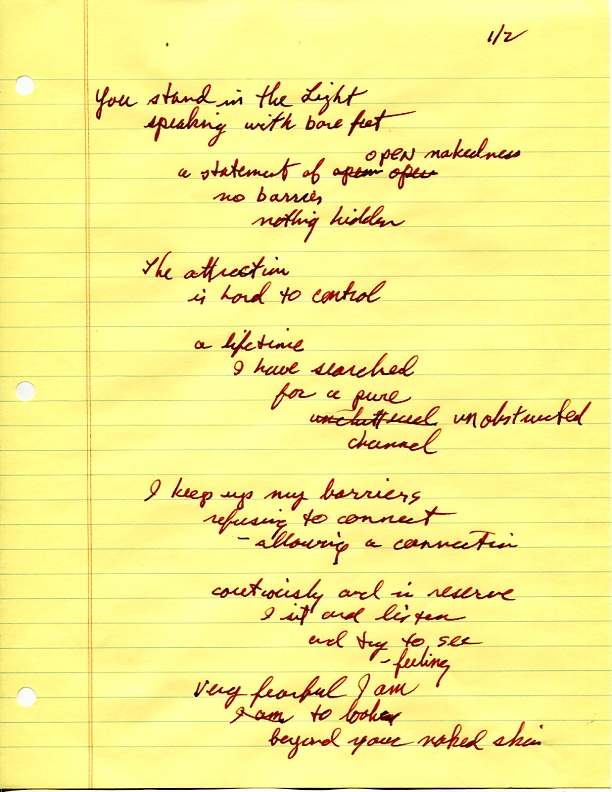 1/2
You stand in the Light
speaking with bare feet
open nakedness
a statement of open open
no barries
nothig hidden
The attraction
is hard to control
a lifetime
I have searched
for a pure
uncluttered unobstructed
channel
I keep up my barriers
refusing to connect
- allowing a connection
coutiously and in reserve
I sit and listen
and try to see
- feeling
very fearful I am
I am to look
beyond your naked skin